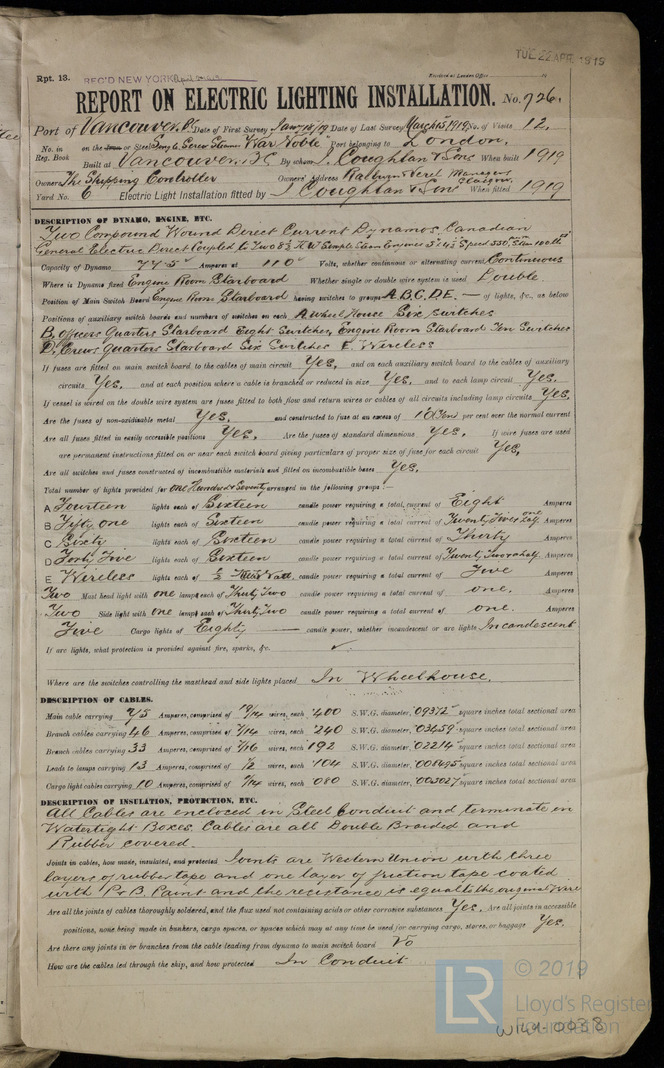 TUE. 22 APR. 1919
Rpt. 13. REC'D NEW YORK Received at London Office
REPORT ON ELECTRIC LIGHTING INSTALLATION. No. 726.
Port of Vancouver B.C. Date of First Survey Jan 18/19 Date of Last Survey March 5 1919 No. of Visits 12.
No. in Reg. Book on the Iron or Steel Screw Steamer War Noble Port belonging to London.
Built at Vancouver B.C By whom J. Coughlan & Sons When built 1919
Owners The Shipping Controller Owners' Address Managers Glasgow
Yard No. 6 Electric Light Installation fitted by J Coughlan & Sons When fitted 1919
DESCRIPTION OF DYNAMO, ENGINE, ETC.
Two Compound Wound Direct Current Dynamos, Canadian
General Electric Direct Coupled to Two 8½ K W Simple Steam Engines Speed 550
Capacity of Dynamo 77.5 Amperes at 110 Volts, whether continuous or alternating current Continuous
Where is Dynamo fixed Engine Room Starboard Whether single or double wire system is used Double.
Position of Main Switch Board Engine Room Starboard having switches to groups A.B.C.D.E. — of lights, &c., as below
Positions of auxiliary switch boards and numbers of switches on each A Wheel House Six switches
B, Officers Quarters Starboard Eight Switches, Engine Room Starboard Ten Switches
D, Crews quarters Starboard Six Switches E. Wireless
If fuses are fitted on main switch board to the cables of main circuit Yes. and on each auxiliary switch board to the cables of auxiliary
circuits Yes. and at each position where a cable is branched or reduced in size Yes. and to each lamp circuit Yes.
If vessel is wired on the double wire system are fuses fitted to both flow and return wires or cables of all circuits including lamp circuits Yes.
Are the fuses of non-oxidizable metal Yes. and constructed to fuse at an excess of 10 Ten per cent over the normal current
Are all fuses fitted in easily accessible positions Yes. Are the fuses of standard dimensions Yes. If wire fuses are used
are permanent instructions fitted on or near each switch board giving particulars of proper size of fuse for each circuit Yes,
Are all switches and fuses constructed of incombustible materials and fitted on incombustible bases Yes.
Total number of lights provided for One Hundred & Seventy arranged in the following groups :—
A Fourteen lights each of Sixteen candle power requiring a total current of Eight Amperes
B Fifty one lights each of Sixteen candle power requiring a total current of Twenty Five & one half Amperes
C Sixty lights each of Sixteen candle power requiring a total current of Thirty Amperes
D Forty Five lights each of Sixteen candle power requiring a total current of Twenty Two & half Amperes
E Wireless lights each of ½ Kilo Watt candle power requiring a total current of Five Amperes
Two Mast head light with one lamps each of Thirty Two candle power requiring a total current of one. Amperes
Two Side light with one lamps each of Thirty Two candle power requiring a total current of one. Amperes
Five Cargo lights of Eighty — candle power, whether incandescent or arc lights Incandescent
If arc lights, what protection is provided against fire, sparks, &c. ✓
Where are the switches controlling the masthead and side lights placed In Wheelhouse.
DESCRIPTION OF CABLES.
Main cable carrying 75 Amperes, comprised of 19/14 wires, each .400 S.W.G. diameter, .09372 square inches total sectional area
Branch cables carrying 46 Amperes, comprised of 7/14 wires, each .240 S.W.G. diameter, .03459 square inches total sectional area
Branch cables carrying 33 Amperes, comprised of 7/16 wires, each 192 S.W.G. diameter, .02214 square inches total sectional area
Leads to lamps carrying 13 Amperes, comprised of 1/12 wires, each .104 S.W.G. diameter, square inches total sectional area
Cargo light cables carrying 10 Amperes, comprised of 1/14 wires, each 080 S.W.G. diameter, .005027 square inches total sectional area
DESCRIPTION OF INSULATION, PROTECTION, ETC.
All Cables are enclosed in Steel Conduit and terminate in
Watertight Boxes. Cables are all Double Braided and
Rubber covered.
Joints in cables, how made, insulated, and protected Joints are Western Union with three
layers of rubber tape and one layer of friction tape coated
with P & B. Paint and the resistance is equal to the original Wire
Are all the joints of cables thoroughly soldered, and the flux used not containing acids or other corrosive substances Yes. Are all joints in accessible
positions, none being made in bunkers, cargo spaces, or spaces which may at any time be used for carrying cargo, stores, or baggage Yes.
Are there any joints in or branches from the cable leading from dynamo to main switch board No
How are the cables led through the ship, and how protected In Conduit
LR © 2019
Lloyd's Register
Foundation
W141-0038